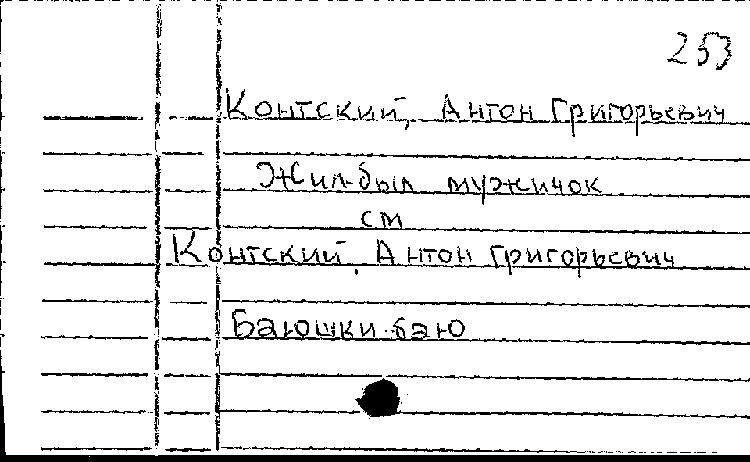 253
Контский, Антон Григорьевич
Жил-был мужичок
см
Контский, Антон Григорьевич
Баюшки-баю